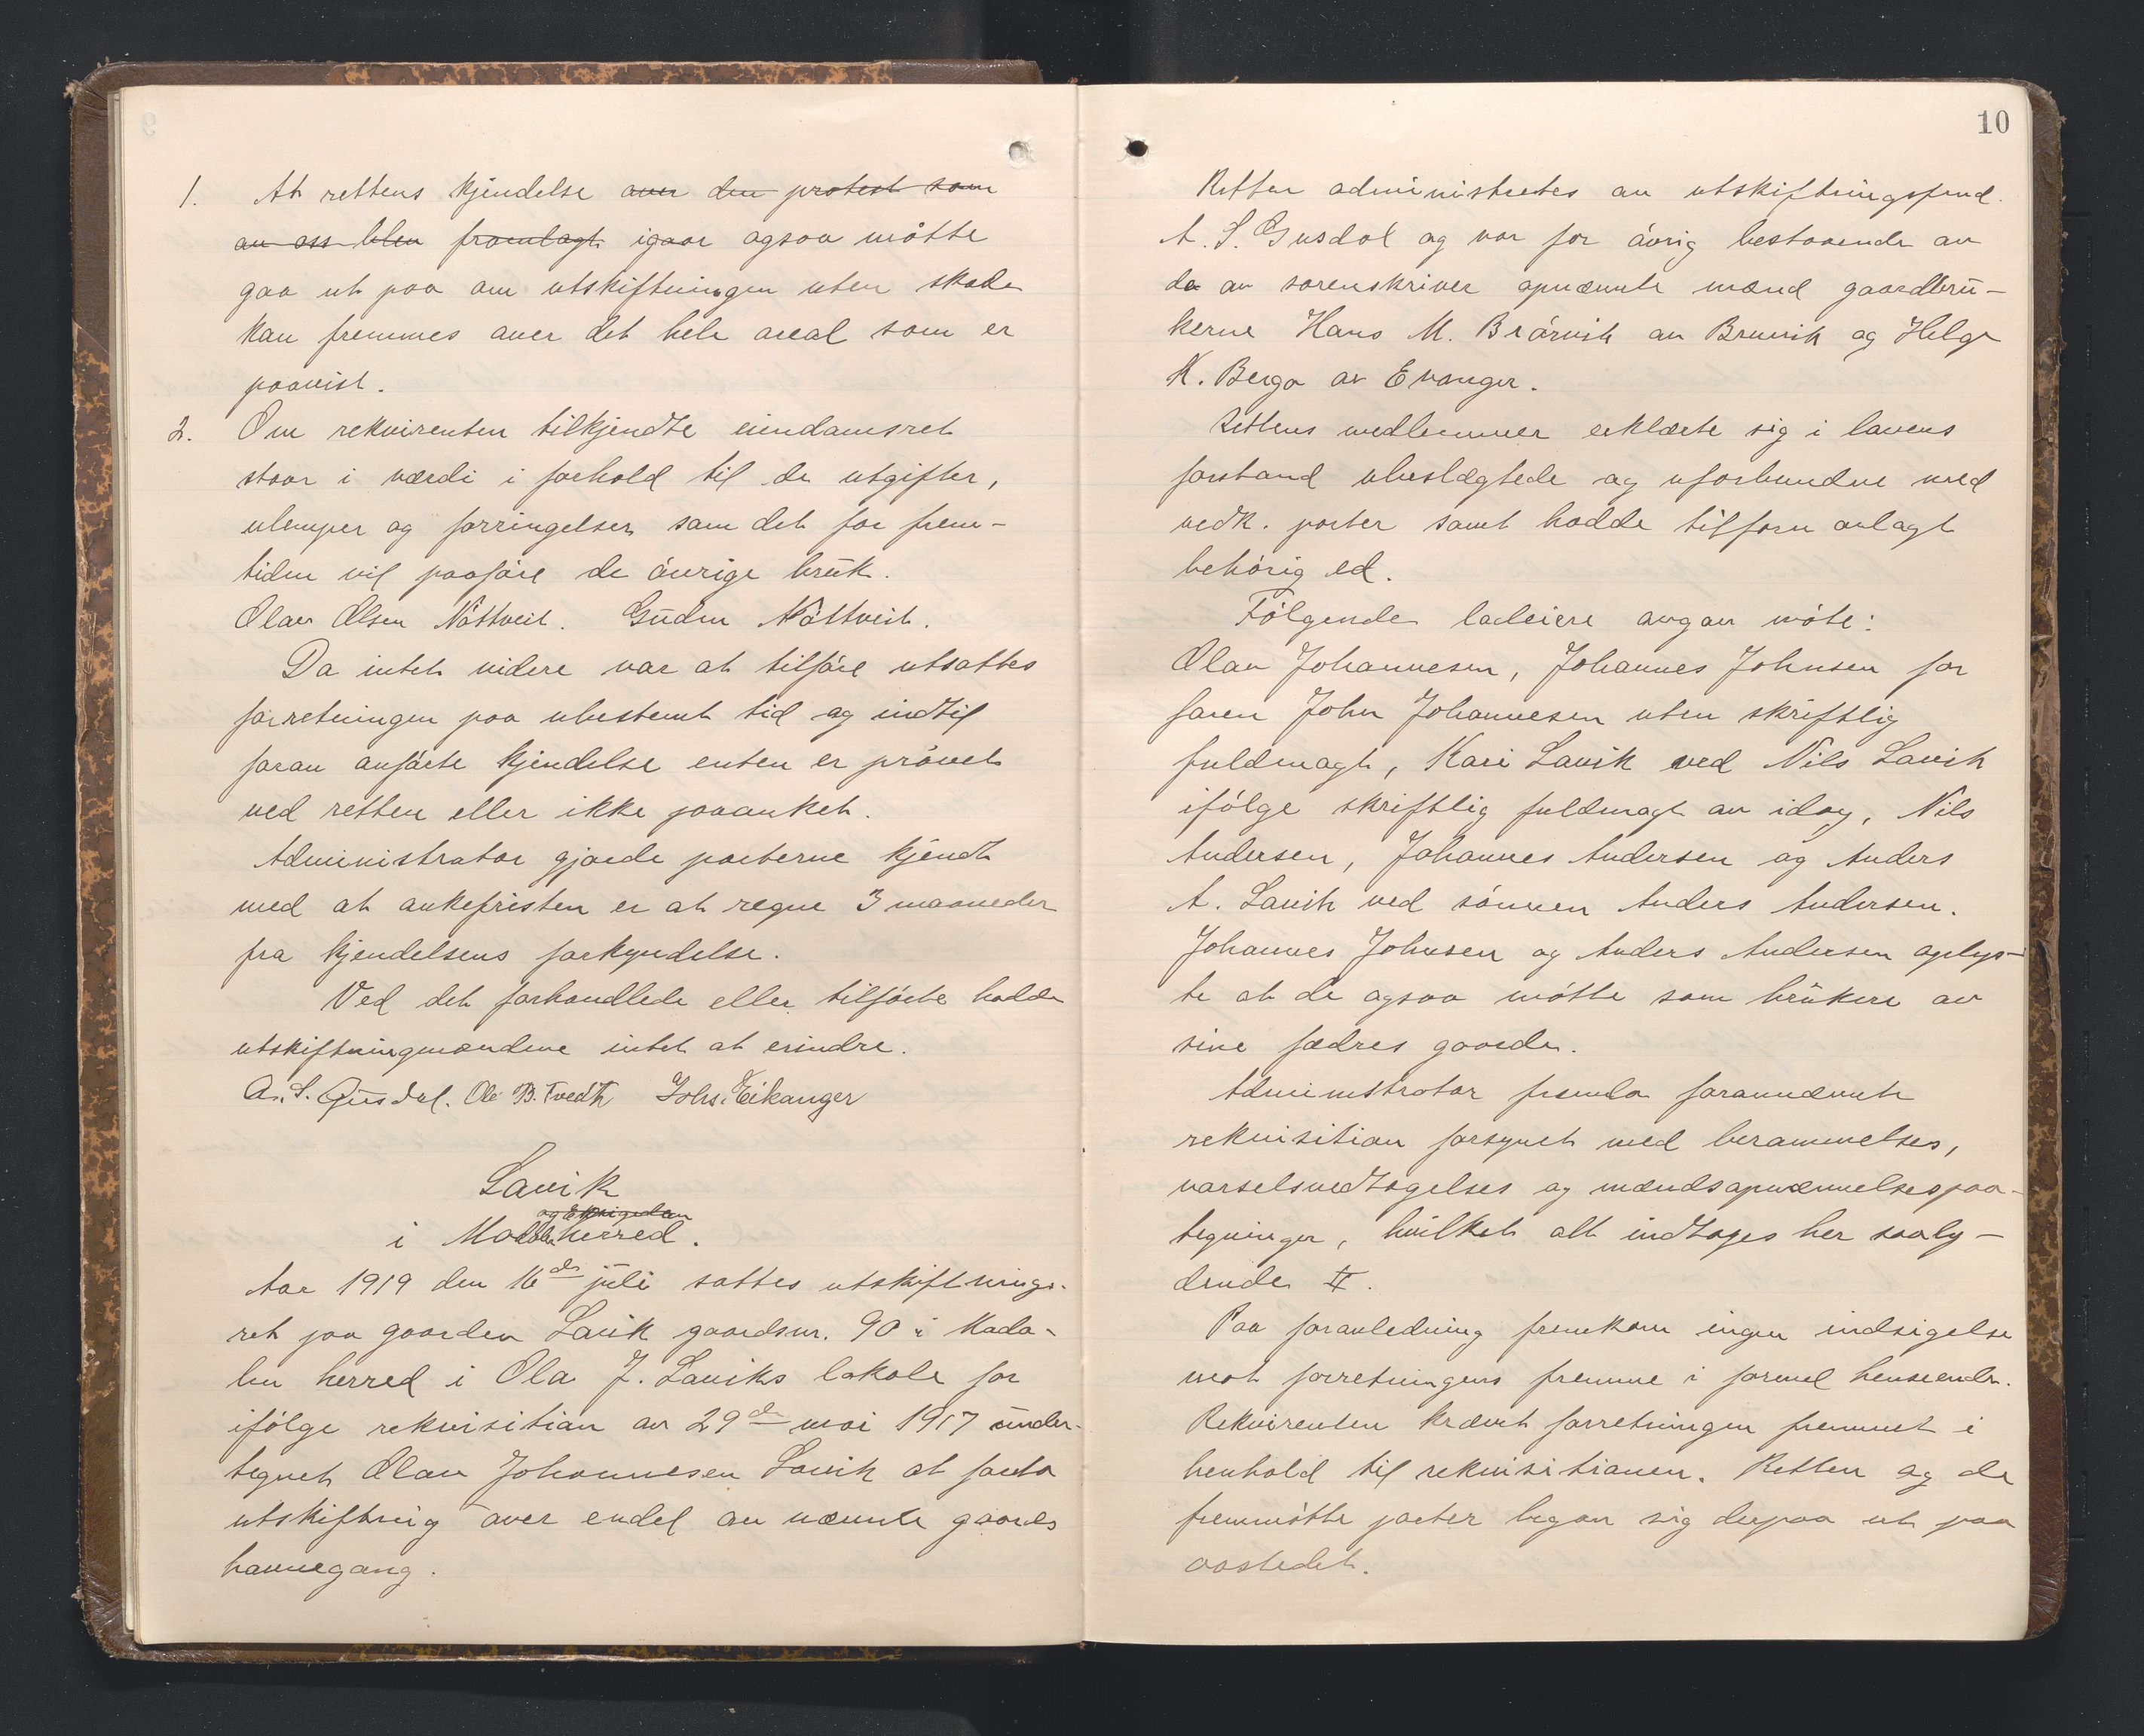 1. At rettens kjendelse over den protest som
av oss blev fremlagt igaar ogsaa måtte
gaa ut paa om utskiftningen uten skade
kan fremmes over det hele areal som er
paavist.
2. Om rekvirenten tilkjendte eiendomsret
staar i værdi i forhold til de utgifter,
ulemper og forringelser som det for frem-
tiden vil paaføre de øvrige bruk.
Olav Olsen Nøttveit. Gudm Nøttveit.
Da intet videre var at tilføre utsattes
forretningen paa ubestemt tid og indtil
foran anførte kjendelse enten er prøvet
ved retten eller ikke paaanket.
Administrator gjorde parterne kjendt
med at ankefristen er at regne 3 maaneder
fra kjendelsens forkyndelse.
Ved det forhandlede eller tilførte hadde
utskiftningmændene intet at erindre.
A. S. Gusdal. Ole B. Tvedt Johs. Eikanger
Lavik
i herred.
Aar 1919 den 16de juli sattes utskiftnings-
ret paa gaarden Lavik gaardsnr. 90 i Moda-
len herred i Ola J. Laviks lokale for
ifølge rekvisition av 29de mai 1917 under-
tegnet Olav Johannesen Lavik at foreta
utskiftning over endel av nævnte gaards
havnegang.
10
Retten administrertes av utskiftningsfund.
A. S. Gusdal og var for øvrig bestaaende av
de av sorenskriver opnævnte mænd gaardbru-
kerne Hans M. Brørvik av Bruvik og Helge
K. Berge av Evanger.
Rettens medlemmer erklærte sig i lovens
forstand ubeslægtede og uforbundne med
vedk. parter samt hadde tilforn avlagt
behørig ed.
Følgende lodeiere avgav møte:
Olav Johannesen, Johannes Johnsen for
faren John Johannesen uten skriftlig
fuldmagt, Kari Lavik ved Nils Lavik
ifølge skriftlig fuldmagt av idag, Nils
Andersen, Johannes Andersen og Anders
A. Lavik ved sønnen Anders Andersen.
Johannes Johnsen og Anders Andersen oplys-
te at de ogsaa møtte som brukere av
sine fædres gaarde.
Administrator fremla forannævnte
rekvisition forsynet med berammelses,
varselsvedtagelses og mændsopnævnelsespaa-
tegninger, hvilket alt indtages her saaly-
dende II.
Paa foranledning fremkom ingen indsigelse
mot forretningens fremme i formel henseende.
Rekvirenten krævet forretningen fremmet i
henhold til rekvisitionen. Retten og de
fremmøtte parter begav sig derpaa ut paa
aastedet.